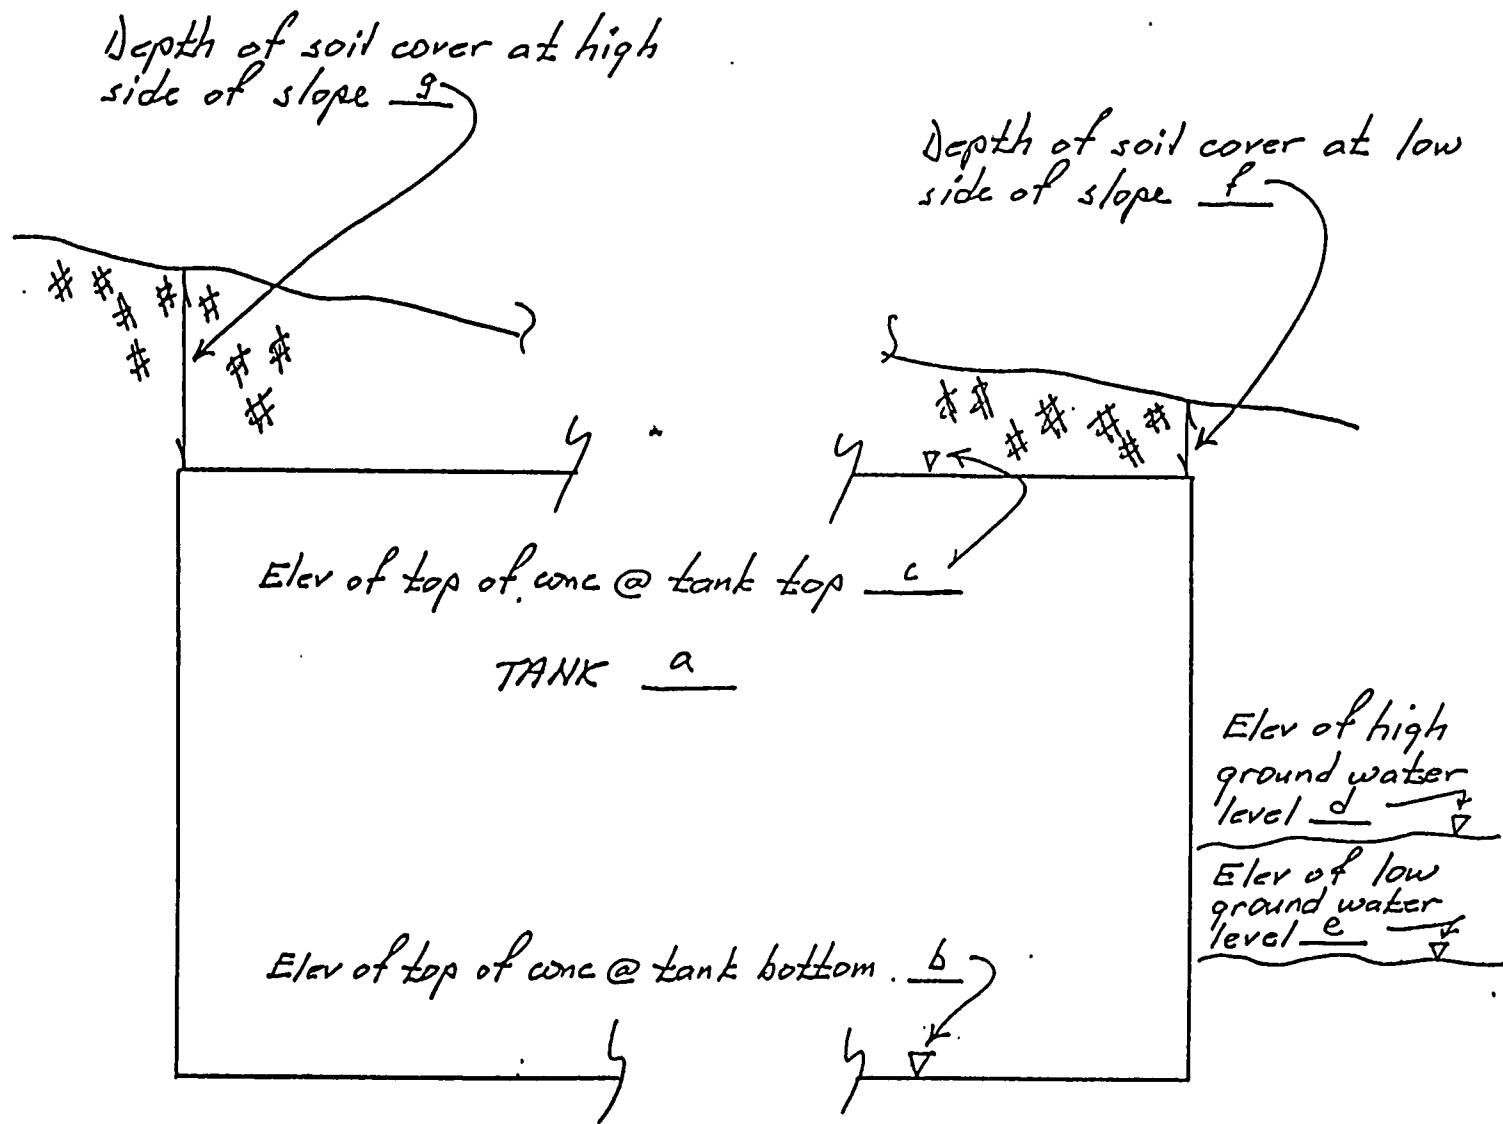 Depth of soil cover at high
side of slope g
Depth of soil cover at low
side of slope f
Elev of top of conc @ tank top c
TANK a
Elev of high
ground water
level d
Elev of low
ground water
level e
Elev of top of conc @ tank bottom b